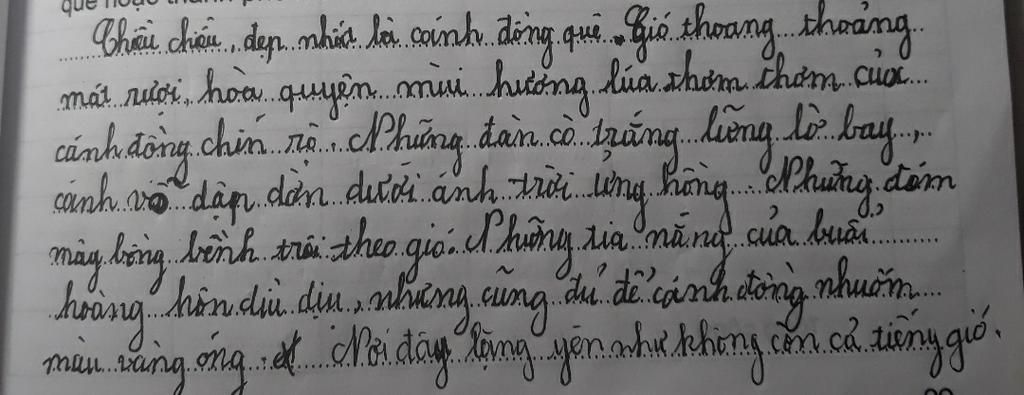 quê hoặc thành ph
Chiều chiều, đẹp nhất là cánh đồng quê. Gió thoang thoảng
mát rượi, hòa quyện mùi hương lúa thơm thơm của
cánh đồng chín rộ. Những đàn cò trắng lững lờ bay,
cánh vỗ dập dờn dưới ánh trời ửng hồng. Những đám
mây bồng bềnh trôi theo gió. Những tia nắng của buổi
hoàng hôn dìu dịu, nhưng cũng đủ để cánh đồng nhuốm
màu vàng óng. Nơi đây lặng yên như không còn cả tiếng gió.